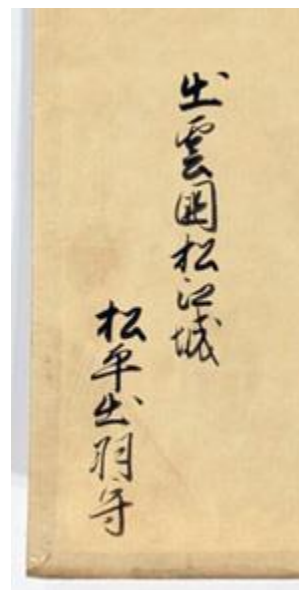 出雲國松江城
松平出羽守